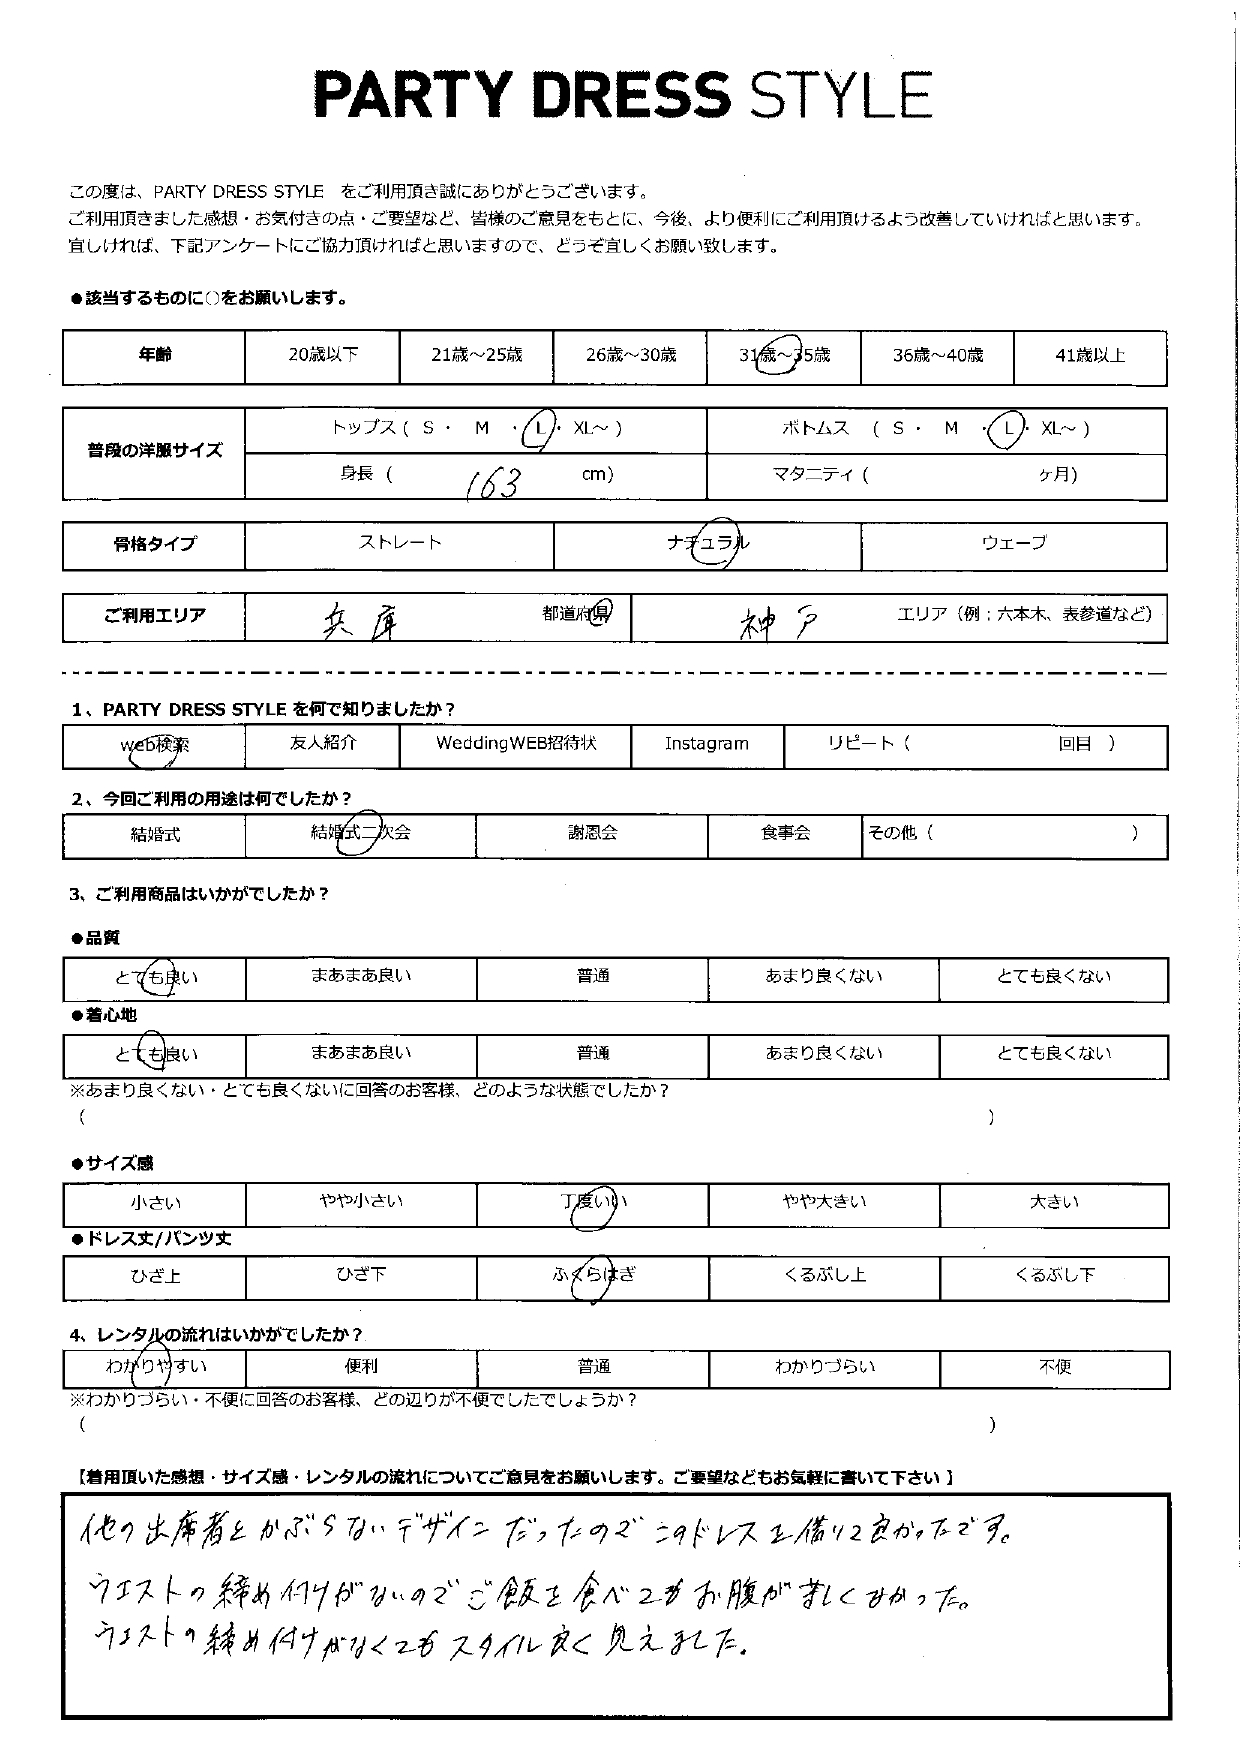 PARTY DRESS STYLE
この度は、PARTY DRESS STYLE をご利用頂き誠にありがとうございます。
ご利用頂きました感想・お気付きの点・ご要望など、皆様のご意見をもとに、今後、より便利にご利用頂けるよう改善していければと思います。
宜しければ、下記アンケートにご協力頂ければと思いますので、どうぞ宜しくお願い致します。
●該当するものに○をお願いします。
年齢 20歳以下 21歳～25歳 26歳～30歳 31歳～35歳 36歳～40歳 41歳以上
普段の洋服サイズ トップス ( S ・ M ・ L ・ XL～ ) ボトムス ( S ・ M ・ L ・ XL～ )
身長 ( 163 cm) マタニティ ( ヶ月)
骨格タイプ ストレート ナチュラル ウェーブ
ご利用エリア 兵庫 都道府県 神戸 エリア（例；六本木、表参道など）
1、PARTY DRESS STYLE を何で知りましたか？
web検索 友人紹介 WeddingWEB招待状 Instagram リピート ( 回目 )
2、今回ご利用の用途は何でしたか？
結婚式 結婚式二次会 謝恩会 食事会 その他 ( )
3、ご利用商品はいかがでしたか？
●品質
とても良い まあまあ良い 普通 あまり良くない とても良くない
●着心地
とても良い まあまあ良い 普通 あまり良くない とても良くない
※あまり良くない・とても良くないに回答のお客様、どのような状態でしたか？
( )
●サイズ感
小さい やや小さい 丁度いい やや大きい 大きい
●ドレス丈/パンツ丈
ひざ上 ひざ下 ふくらはぎ くるぶし上 くるぶし下
4、レンタルの流れはいかがでしたか？
わかりやすい 便利 普通 わかりづらい 不便
※わかりづらい・不便に回答のお客様、どの辺りが不便でしたでしょうか？
( )
【着用頂いた感想・サイズ感・レンタルの流れについてご意見をお願いします。ご要望などもお気軽に書いて下さい 】
他の出席者とかぶらないデザインだったのでこのドレスを借りて良かったです。
ウエストの締め付けがないのでご飯を食べてもお腹が苦しくなかった。
ウエストの締め付けがなくてもスタイル良く見えました。